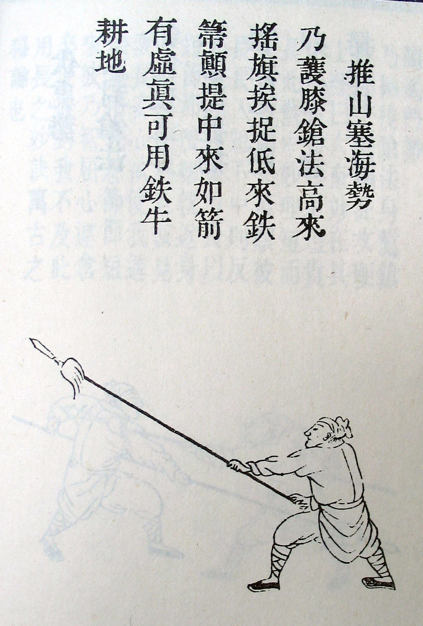 推山塞海勢
乃護膝鎗法高來
搖旗挨捉低來鉄
箒顛提中來如箭
有虛眞可用鉄牛
耕地